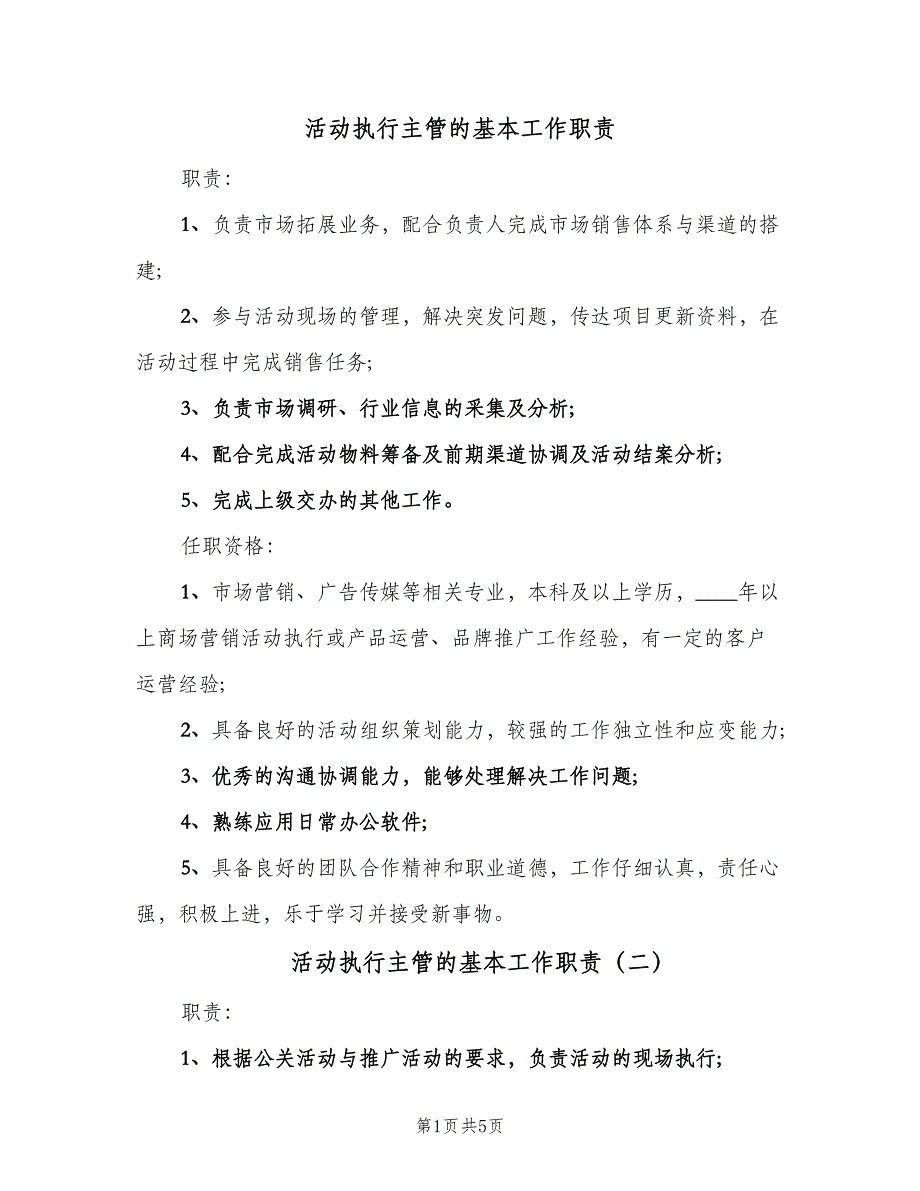 活动执行主管的基本工作职责
职责：
1、负责市场拓展业务，配合负责人完成市场销售体系与渠道的搭
建;
2、参与活动现场的管理，解决突发问题，传达项目更新资料，在
活动过程中完成销售任务;
3、负责市场调研、行业信息的采集及分析;
4、配合完成活动物料筹备及前期渠道协调及活动结案分析;
5、完成上级交办的其他工作。
任职资格：
1、市场营销、广告传媒等相关专业，本科及以上学历，____年以
上商场营销活动执行或产品运营、品牌推广工作经验，有一定的客户
运营经验;
2、具备良好的活动组织策划能力，较强的工作独立性和应变能力;
3、优秀的沟通协调能力，能够处理解决工作问题;
4、熟练应用日常办公软件;
5、具备良好的团队合作精神和职业道德，工作仔细认真，责任心
强，积极上进，乐于学习并接受新事物。
活动执行主管的基本工作职责（二）
职责：
1、根据公关活动与推广活动的要求，负责活动的现场执行;
第1页共5页